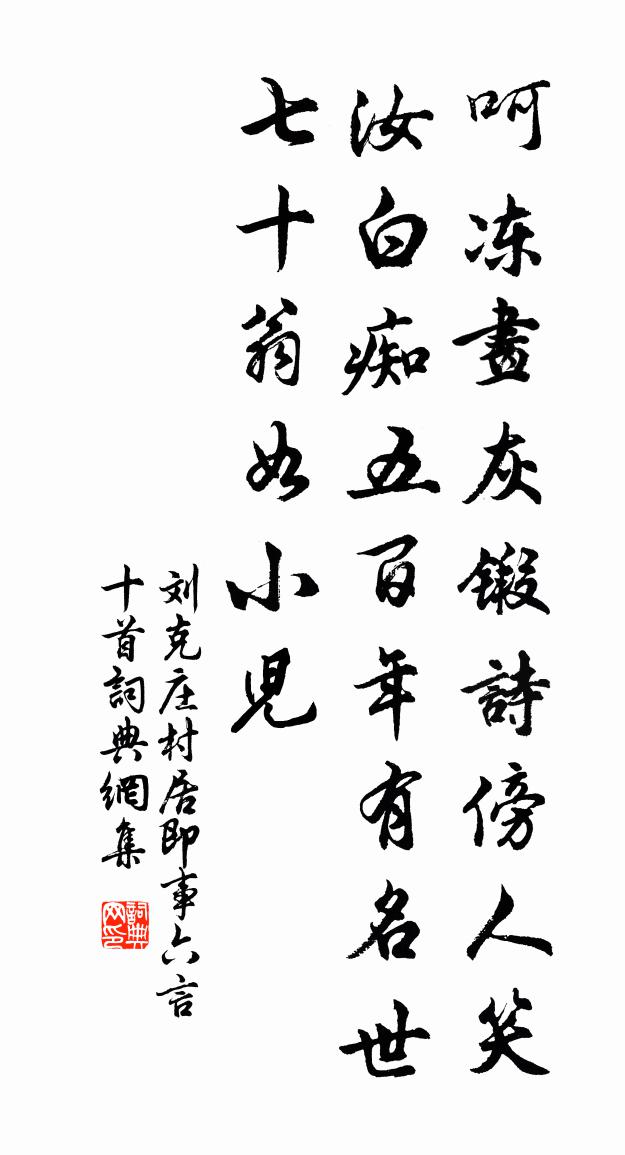 呵冻畫灰鍛詩傍人笑
汝白痴五百年有名世
七十翁如小児
刘克庄村居即事六言
十首詞典網集
詞典
网印